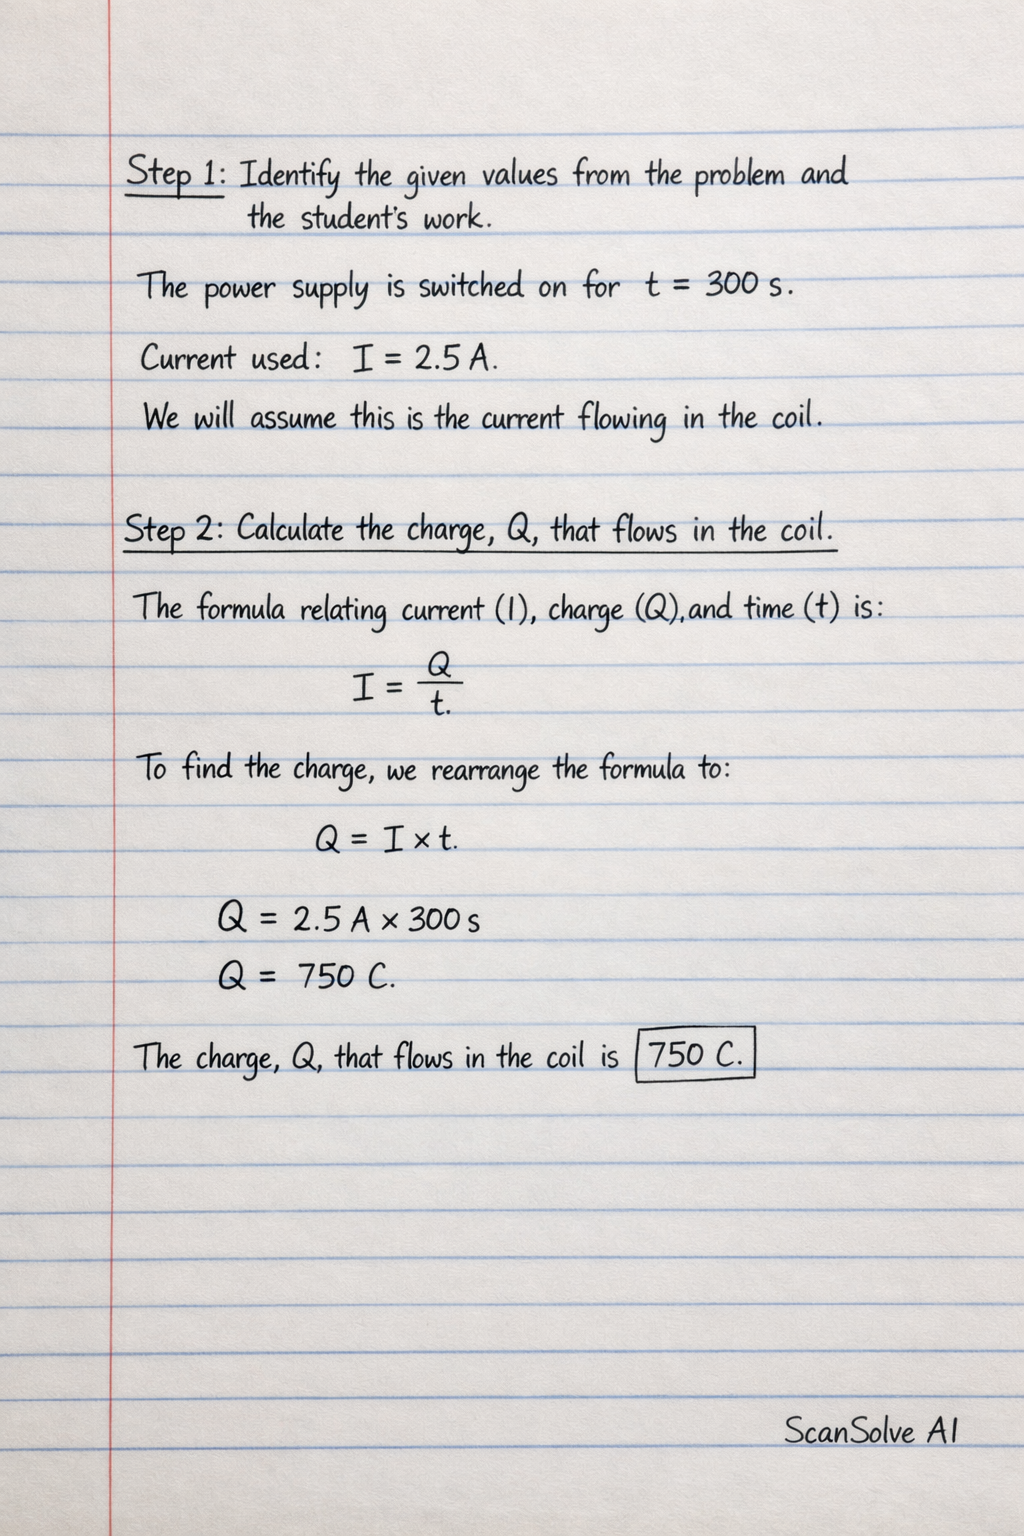 Step 1: Identify the given values from the problem and
the student's work.
The power supply is switched on for t = 300 s.
Current used: I = 2.5 A.
We will assume this is the current flowing in the coil.
Step 2: Calculate the charge, Q, that flows in the coil.
The formula relating current (I), charge (Q), and time (t) is:
I = Q/t.
To find the charge, we rearrange the formula to:
Q = I × t.
Q = 2.5 A × 300 s
Q = 750 C.
The charge, Q, that flows in the coil is 750 C.
ScanSolve AI